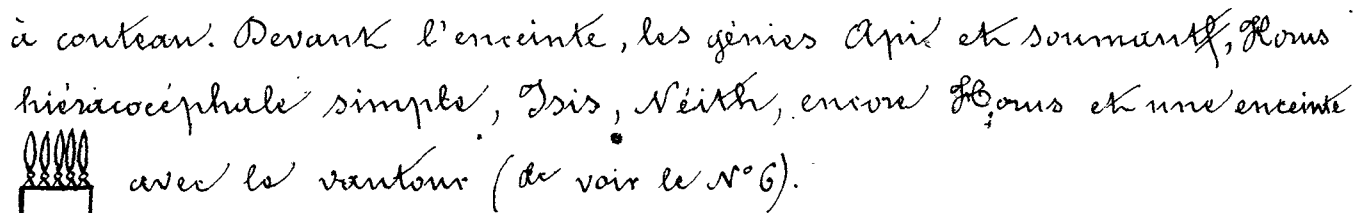 à couteau. Devant l'enceinte, les génies Api et soumautf, Horus
hiéracocéphale simple, Isis, Néith, encore Horus et une enceinte
avec le vautour (de voir le N° 6).